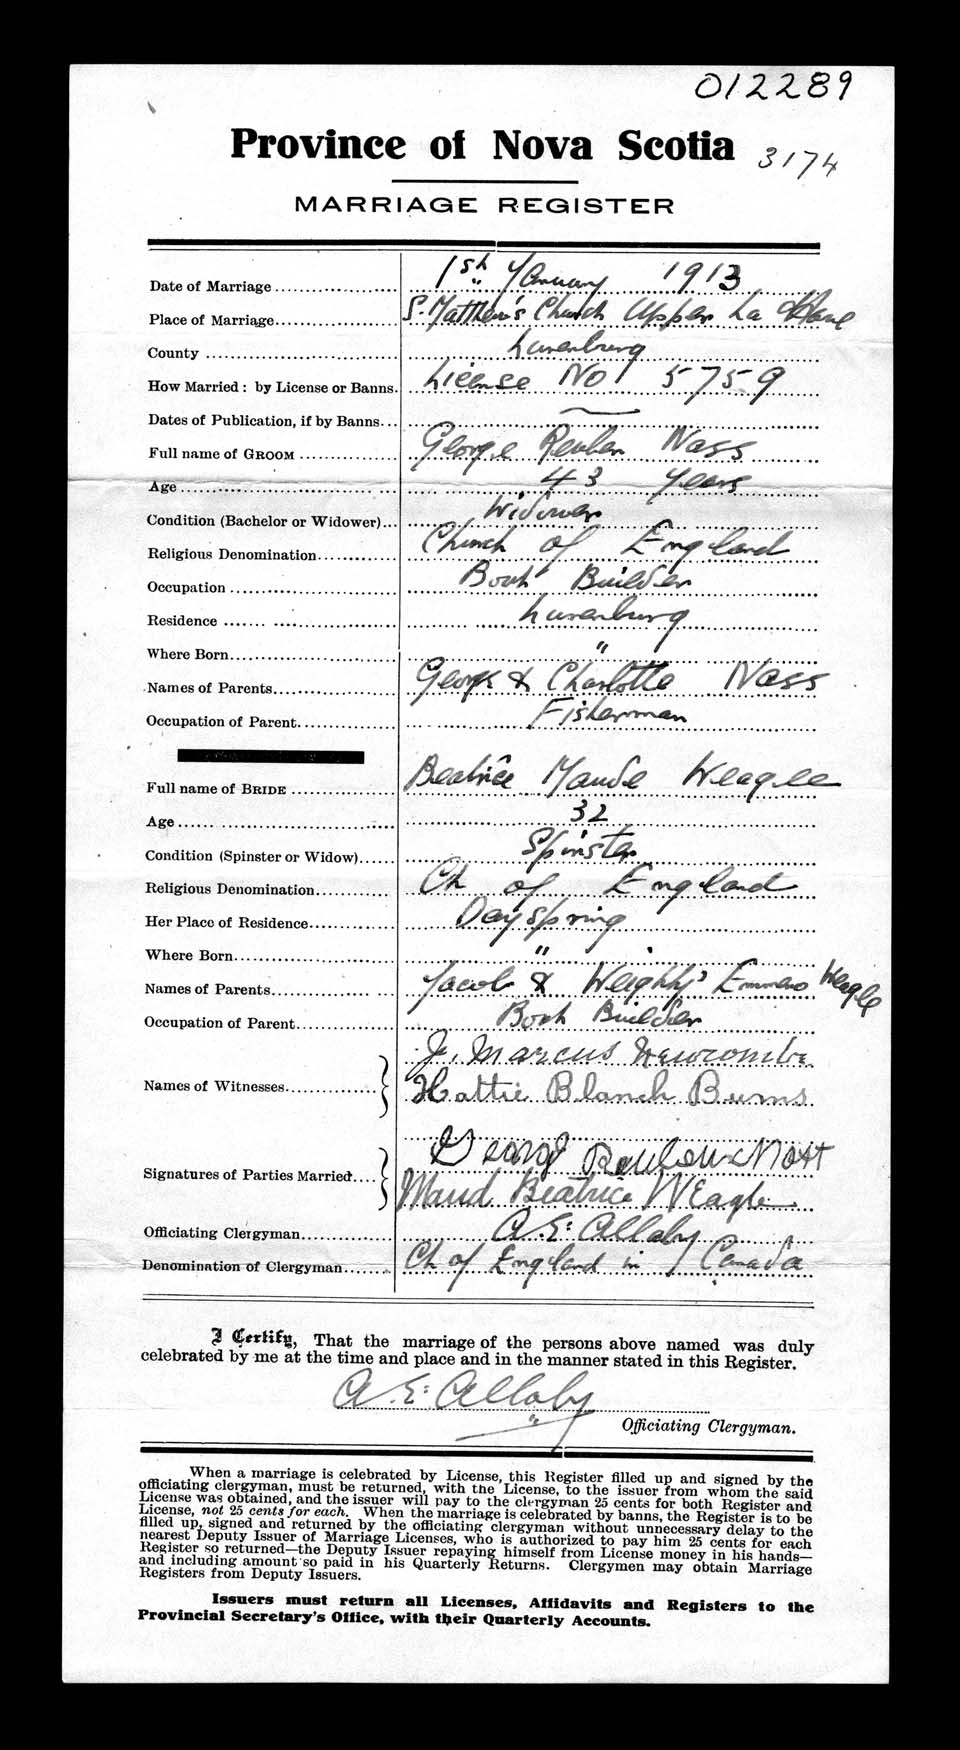 012289
Province of Nova Scotia 3174
MARRIAGE REGISTER
Date of Marriage 1st January 1913
Place of Marriage St. Matthew's Church Upper La Have
County Lunenburg
How Married: by License or Banns. License No 5759
Dates of Publication, if by Banns
Full name of GROOM George Reuben Nass
Age 43 years
Condition (Bachelor or Widower) Widower
Religious Denomination Church of England
Occupation Boat Builder
Residence Lunenburg
Where Born "
Names of Parents George & Charlotte Nass
Occupation of Parent Fisherman
Full name of BRIDE Beatrice Maude Weagle
Age 32
Condition (Spinster or Widow) Spinster
Religious Denomination Ch of England
Her Place of Residence Dayspring
Where Born "
Names of Parents Jacob & Emmeno Weagle
Occupation of Parent Boat Builder
J. Marcus Newcombe
Names of Witnesses Hattie Blanch Burns
George
Signatures of Parties Married Maud Beatrice WEagle
Officiating Clergyman A. E. Allaby
Denomination of Clergyman Ch of England in Canada
I Certify, That the marriage of the persons above named was duly
celebrated by me at the time and place and in the manner stated in this Register.
A. E. Allaby
Officiating Clergyman.
When a marriage is celebrated by License, this Register filled up and signed by the
officiating clergyman, must be returned, with the License, to the issuer from whom the said
License was obtained, and the issuer will pay to the clergyman 25 cents for both Register and
License, not 25 cents for each. When the marriage is celebrated by banns, the Register is to be
filled up, signed and returned by the officiating clergyman without unnecessary delay to the
nearest Deputy Issuer of Marriage Licenses, who is authorized to pay him 25 cents for each
Register so returned—the Deputy Issuer repaying himself from License money in his hands—
and including amount so paid in his Quarterly Returns. Clergymen may obtain Marriage
Registers from Deputy Issuers.
Issuers must return all Licenses, Affidavits and Registers to the
Provincial Secretary's Office, with their Quarterly Accounts.